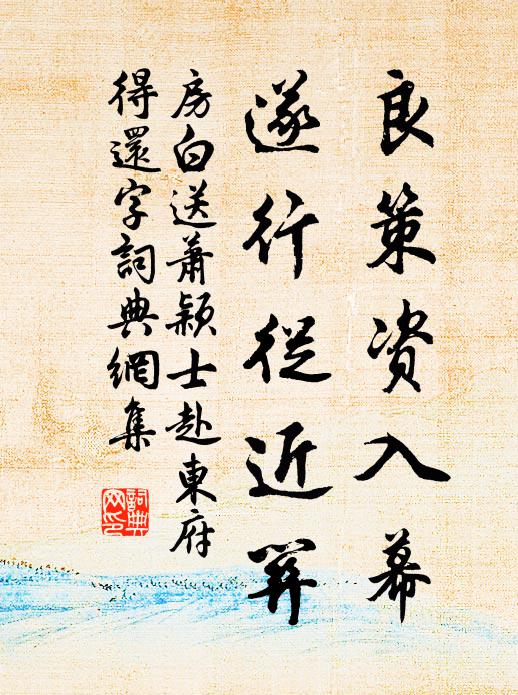 良策资入幕
遂行從近關
房白送蕭穎士赴東府
得還字詞典網集
詞典
网印